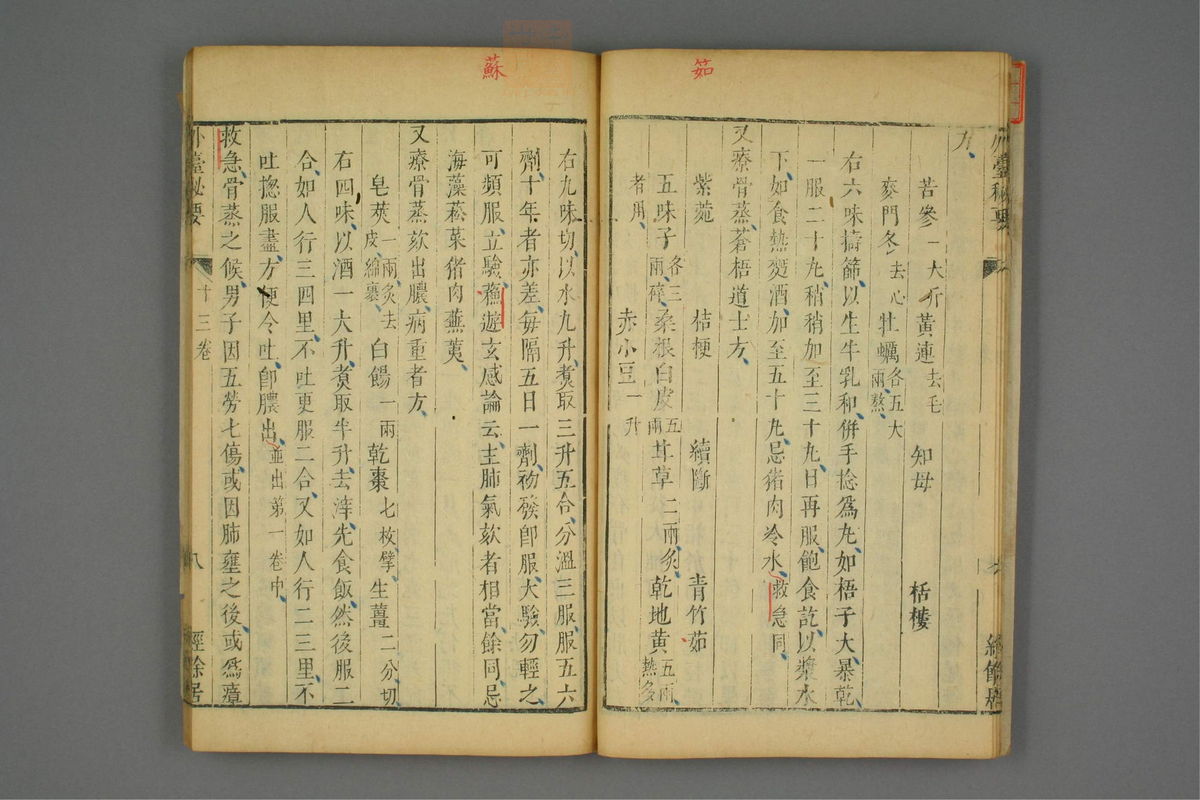 茹
方
苦參一大斤 黃連去毛 知母 栝樓
麥門冬去心 牡蠣各五大兩熬
右六味擣篩以生牛乳和併手捻爲丸如梧子大暴乾
一服二十丸稍稍加至三十丸日再服飽食訖以漿水
下如食熱麪酒加至五十丸忌猪肉冷水救急同
又療骨蒸蒼梧道士方
紫菀 桔梗 續斷 青竹茹
五味子各三兩碎 桑根白皮五兩 甘草二兩炙 乾地黄五兩熱多
者用 赤小豆一升
蘇
右九味切以水九升煑取三升五合分溫三服服五六
劑十年者亦差每隔五日一劑初發卽服大驗勿輕之
可頻服立驗蘓遊玄感論云主肺氣欬者相當餘同忌
海藻菘菜猪肉蕪荑
又療骨蒸欬出膿病重者方
皂莢一兩炙去皮綿裹 白餳一兩 乾棗七枚擘 生薑二分切
右四味以酒一大升煑取半升去滓先食飯然後服二
合如人行三四里不吐更服二合又如人行二三里不
吐揔服盡方便令吐卽膿出並出第一卷中
救急骨蒸之候男子因五勞七傷或因肺壅之後或爲瘴
外臺秘要 十三卷 八 經餘居